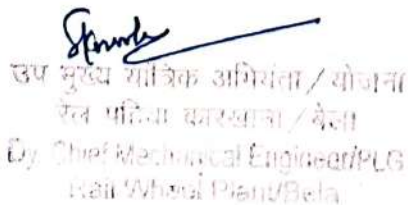 उप मुख्य यांत्रिक अभियंता / योजना
रेल पहिया कारखाना / बेला
Dy. Chief Mechanical Engineer/PLG
Rail Wheel Plant/Bela